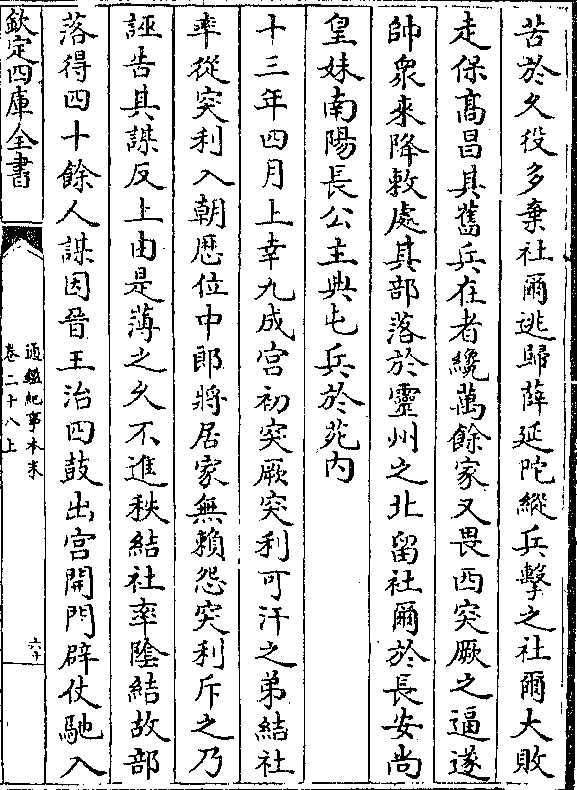 苦於久役多棄社爾逃歸薛延陀縱兵擊之社爾大敗
走保高昌其舊兵在者纔萬餘家又畏西突厥之逼遂
帥衆來降敕處其部落於靈州之北留社爾於長安尚
皇妹南陽長公主典屯兵於苑内
十三年四月上幸九成宫初突厥突利可汗之弟結社
率從突利入朝歴位中郎將居家無賴怨突利斥之乃
誣告其謀反上由是薄之久不進秩結社率隂結故部
落得四十餘人謀因晉王治四鼓出宫開門辟仗馳入
欽定四庫全書
通鑑紀事本末
卷二十八上
六十